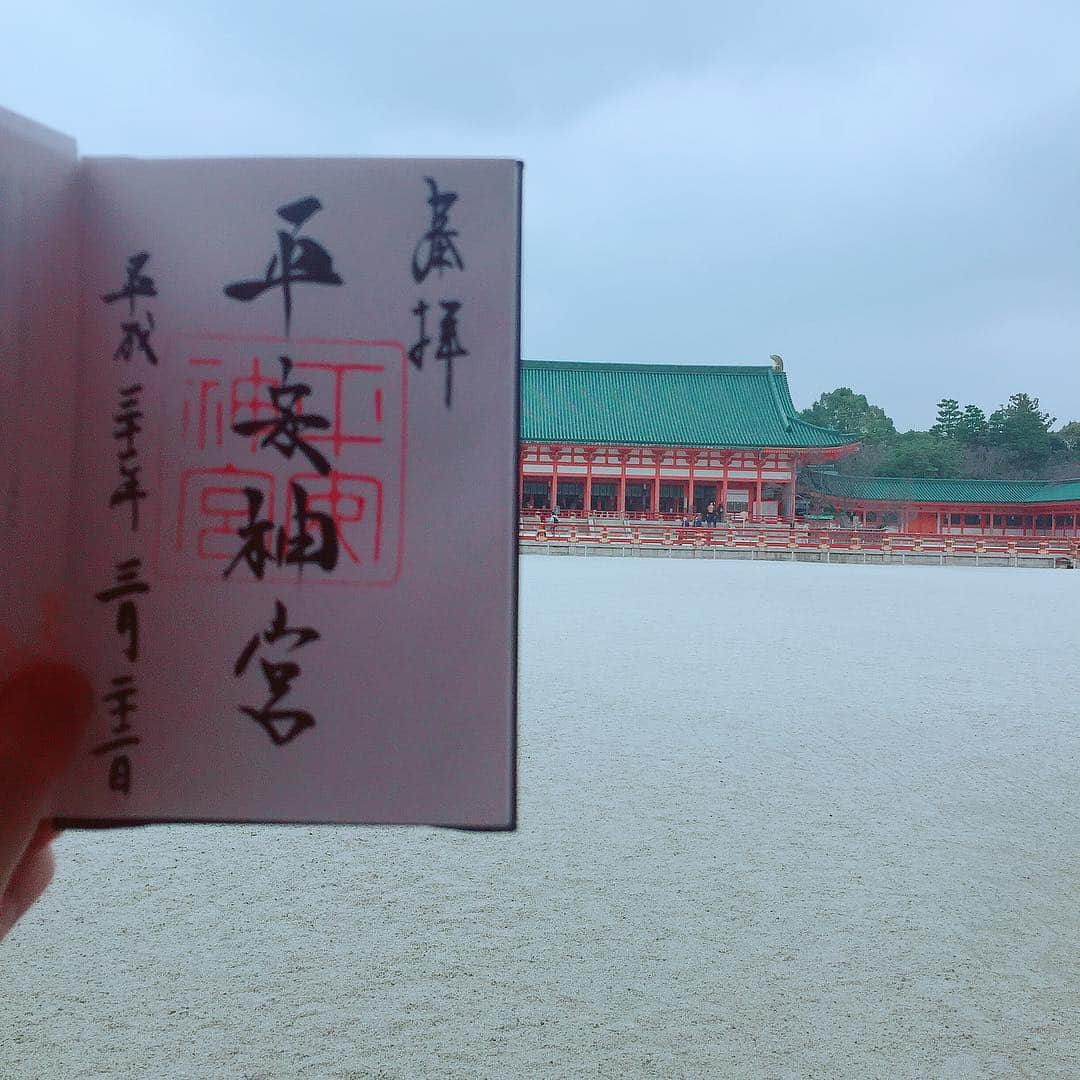 奉拝
平安神宮
平安
神宮
平成三十年三月二十二日